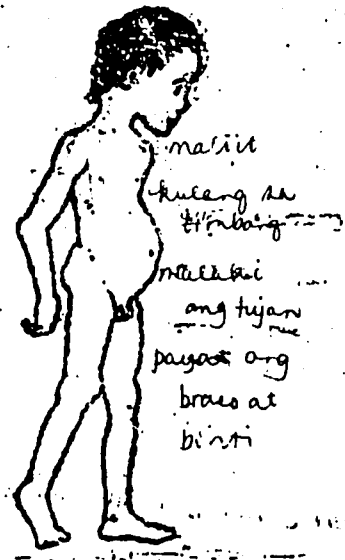 maliit
kulang sa
timbang
malaki
ang tiyan
payat ang
braso at
binti